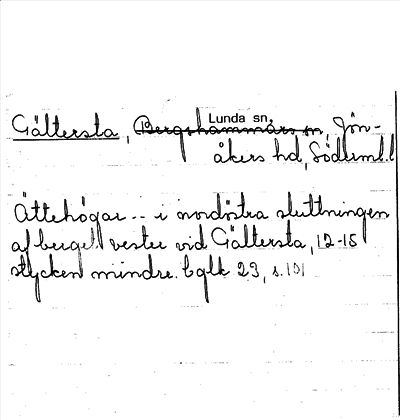 Lunda sn,
Gältersta, Bergshammars sn, Jön-
åkers hd, Söderml.l
Ättehögar -- i nordöstra sluttningen
af berget vester vid Gältersta, 12-15
stycken mindre. bglk 23, s. 101